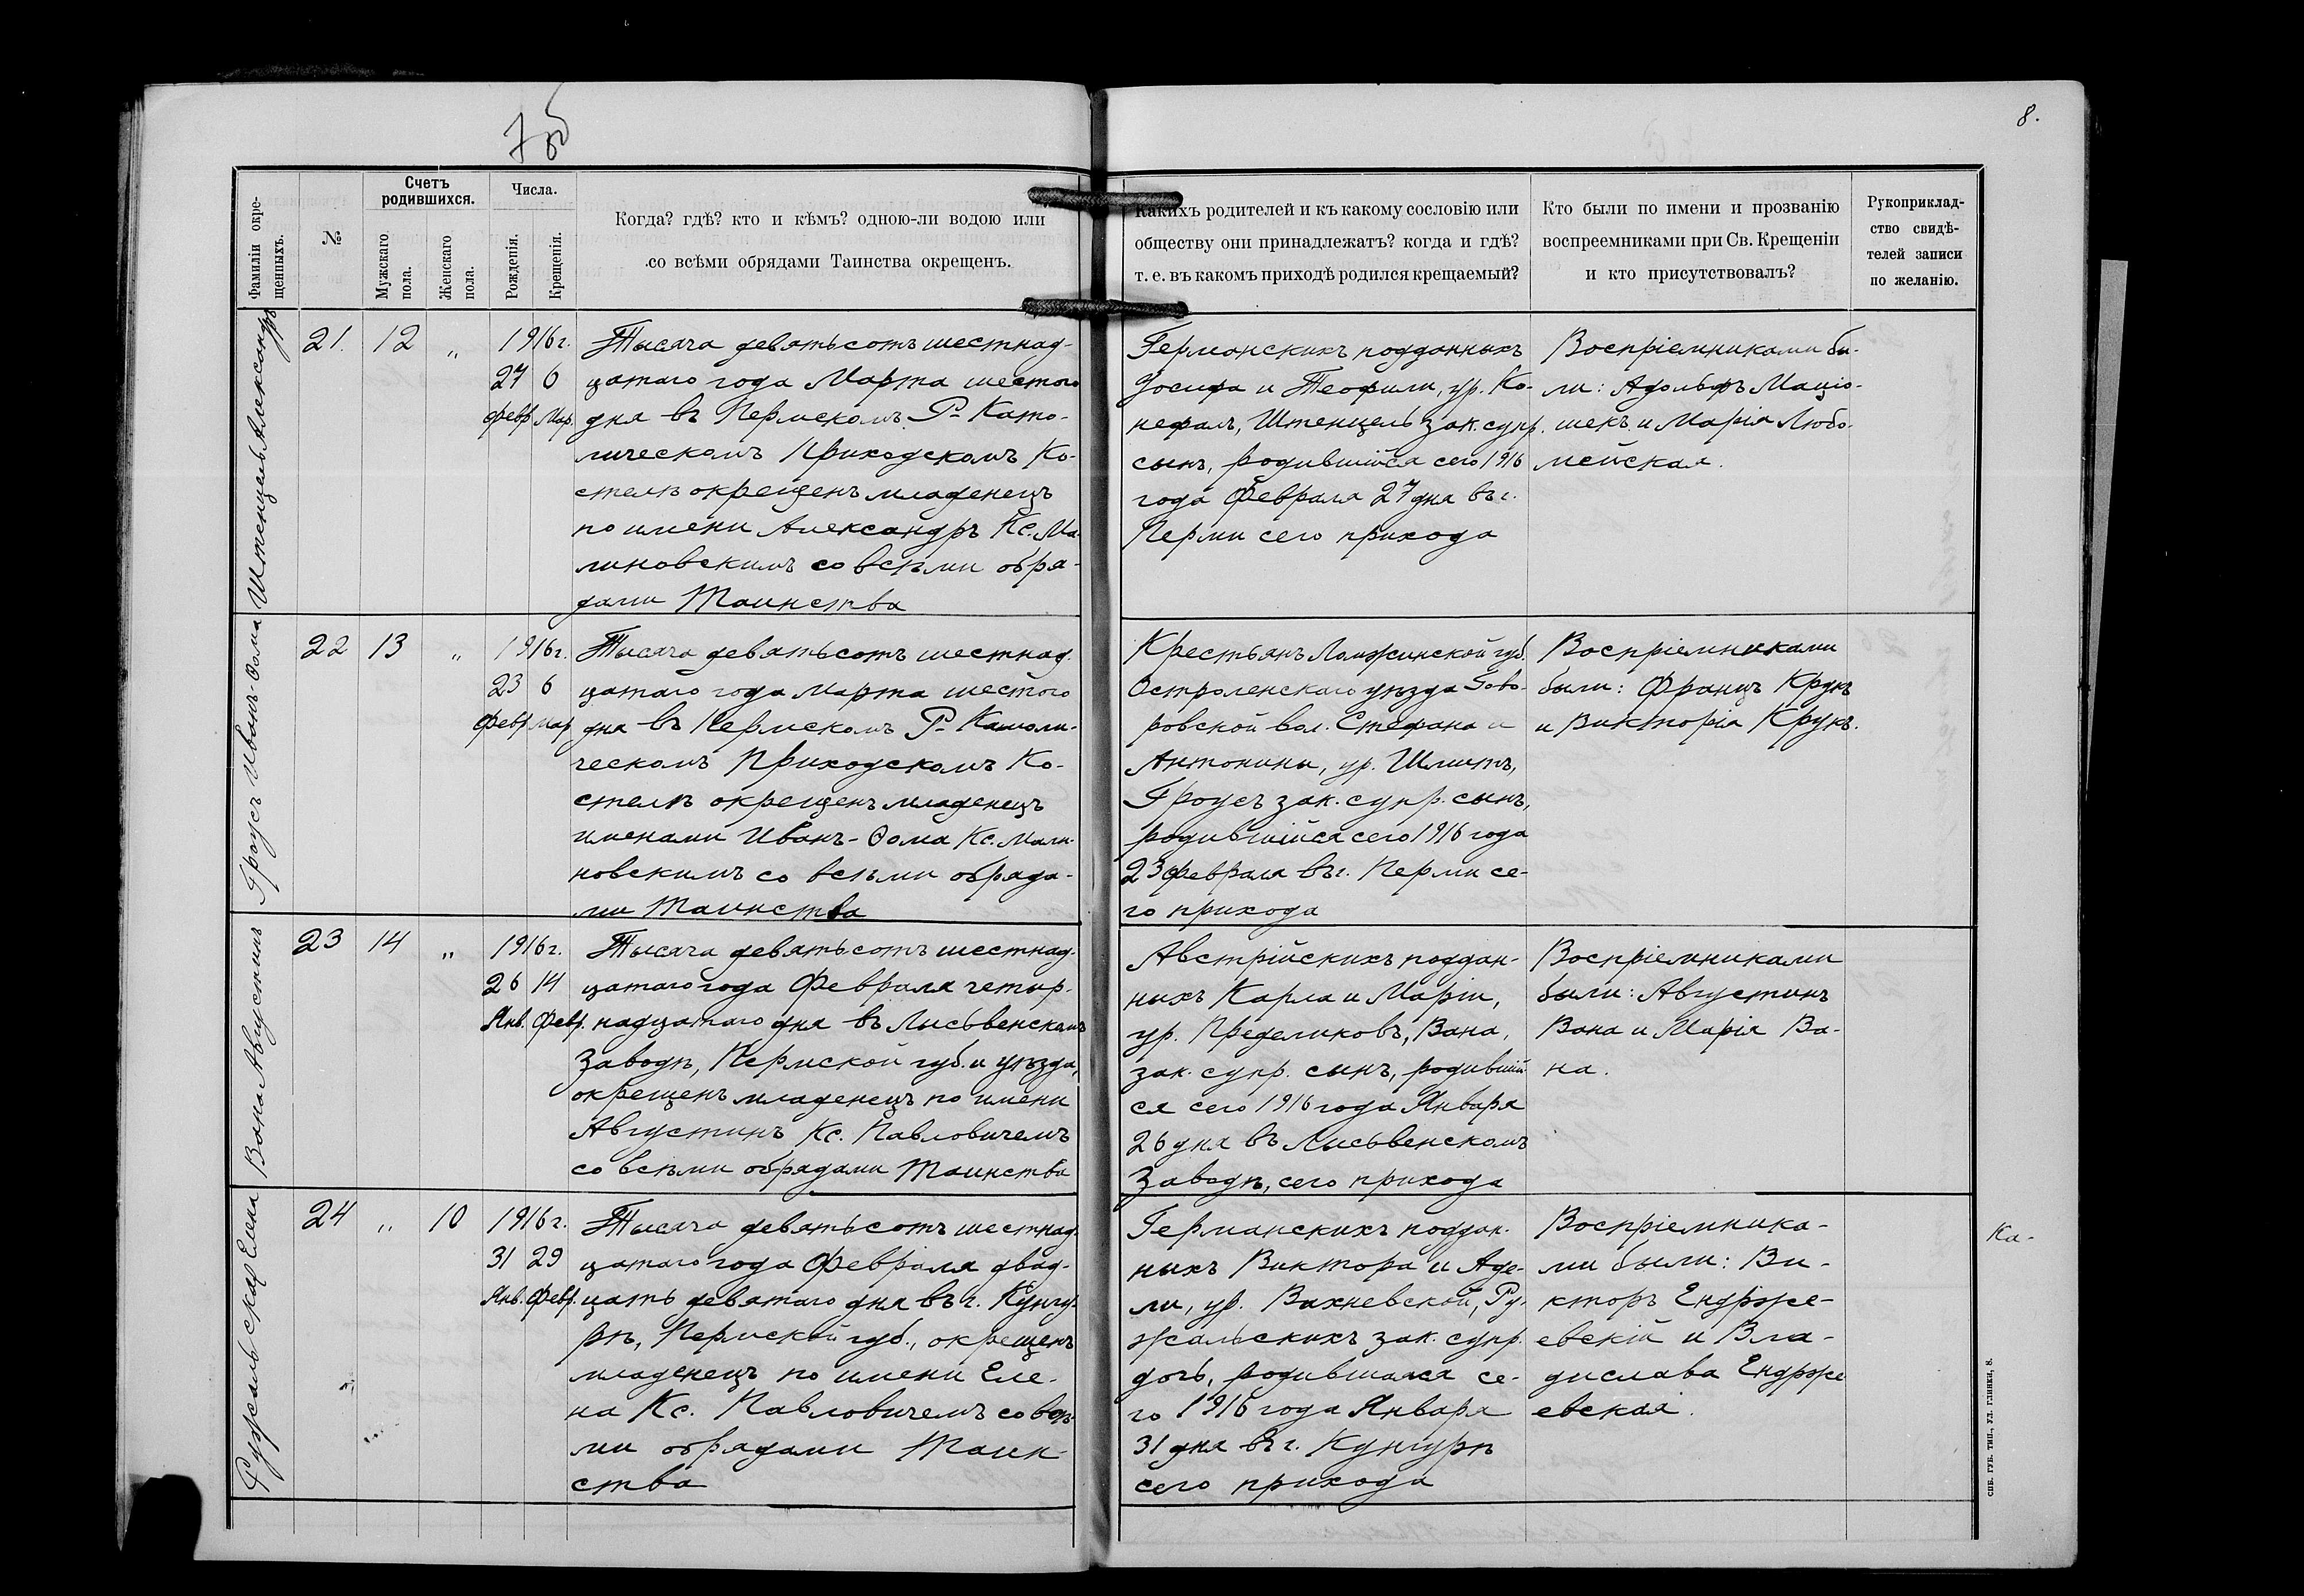 7об
8.
Фамиліи окре-
щенныхъ.
№
Счетъ
родившихся.
Мужскаго
пола.
Женскаго
пола.
Числа.
Рожденія.
Крещенія.
Когда? гдѣ? кто и кѣмъ? одною-ли водою или
со всѣми обрядами Таинства окрещенъ.
Какихъ родителей и къ какому сословію или
обществу они принадлежатъ? когда и гдѣ?
т. е. въ какомъ приходѣ родился крещаемый?
Кто были по имени и прозванію
воспреемниками при Св. Крещеніи
и кто присутствовалъ?
Рукоприклад-
ство свидѣ-
телей записи
по желанію.
Штенцель Александръ
21. 12 „
1916 г.
27 6
февр Мар.
Тысяча девятьсотъ шестнад-
цатаго года Марта шестого
дня въ Пермскомъ Р- Като-
лическомъ Приходскомъ Ко-
стелѣ окрещенъ младенецъ
по имени Александръ Кс. Ма-
линовскимъ со всѣми обря-
дами Таинства
Германскихъ подданныхъ
Іосифа и Теофили, ур. Ко-
нефалъ, Штенцель зак. супр.
сынъ, родившійся сего 1916
года Февраля 27 дня въ г.
Перми сего прихода
Воспріемниками бы-
ли: Адольфъ Маціо-
шекъ и Марія Любо-
мейская.
Гроусъ Иванъ-Ѳома
22 13 „
1916 г.
23 6
Февр мар
Тысяча девятьсотъ шестнад-
цатаго года Марта шестого
дня въ Пермскомъ Р- Католи-
ческомъ Приходскомъ Ко-
стелѣ окрещенъ младенецъ
именами Иванъ-Ѳома Кс. Мали-
новскимъ со всѣми обряда-
ми Таинства
Крестьянъ Ломжинской губ.
Остроленскаго уѣзда Гово-
ровской вол. Стефана и
Антонины, ур. Шмитъ,
Гроусъ зак. супр. сынъ,
родившійся сего 1916 года
23 февраля въ г. Перми се-
го прихода
Воспріемниками
были: Францъ Крукъ
и Викторія Крукъ.
Вана Августинъ
23 14 „
1916 г.
26 14
Янв. Февр.
Тысяча девятьсотъ шестнад-
цатаго года Февраля четыр-
надцатаго дня въ Лысьвенскомъ
Заводѣ, Пермской губ. и уѣзда,
окрещенъ младенецъ по имени
Августинъ Кс. Павловичемъ
со всѣми обрядами Таинства
Австрійскихъ поддан-
ныхъ Карла и Маріи,
ур. Пределиковъ, Вана,
зак. супр. сынъ, родившій-
ся сего 1916 года Января
26 дня въ Лысьвенскомъ
Заводѣ, сего прихода
Воспріемниками
были: Августинъ
Вана и Марія Ва-
на.
Ружальская Елена
24 „ 10
1916 г.
31 29
Янв. Февр.
Тысяча девятьсотъ шестнад-
цатаго года Февраля двад-
цать девятаго дня въ г. Кунгу-
рѣ, Пермской губ., окрещенъ
младенецъ по имени Еле-
на Кс. Павловичемъ со всѣ-
ми обрядами Таин-
ства
Германскихъ поддан-
ныхъ Виктора и Аде-
ли, ур. Вахневской, Ру-
жальскихъ зак. супр.
дочь, родившаяся се-
го 1916 года Января
31 дня въ г. Кунгурѣ
сего прихода
Воспріемника-
ми были: Ви-
кторъ Ендрже-
евскій и Вла-
дислава Ендрже
евская.
Ка-
СПБ. ГУБ. ТИП., УЛ. ГЛИНКИ, 8.